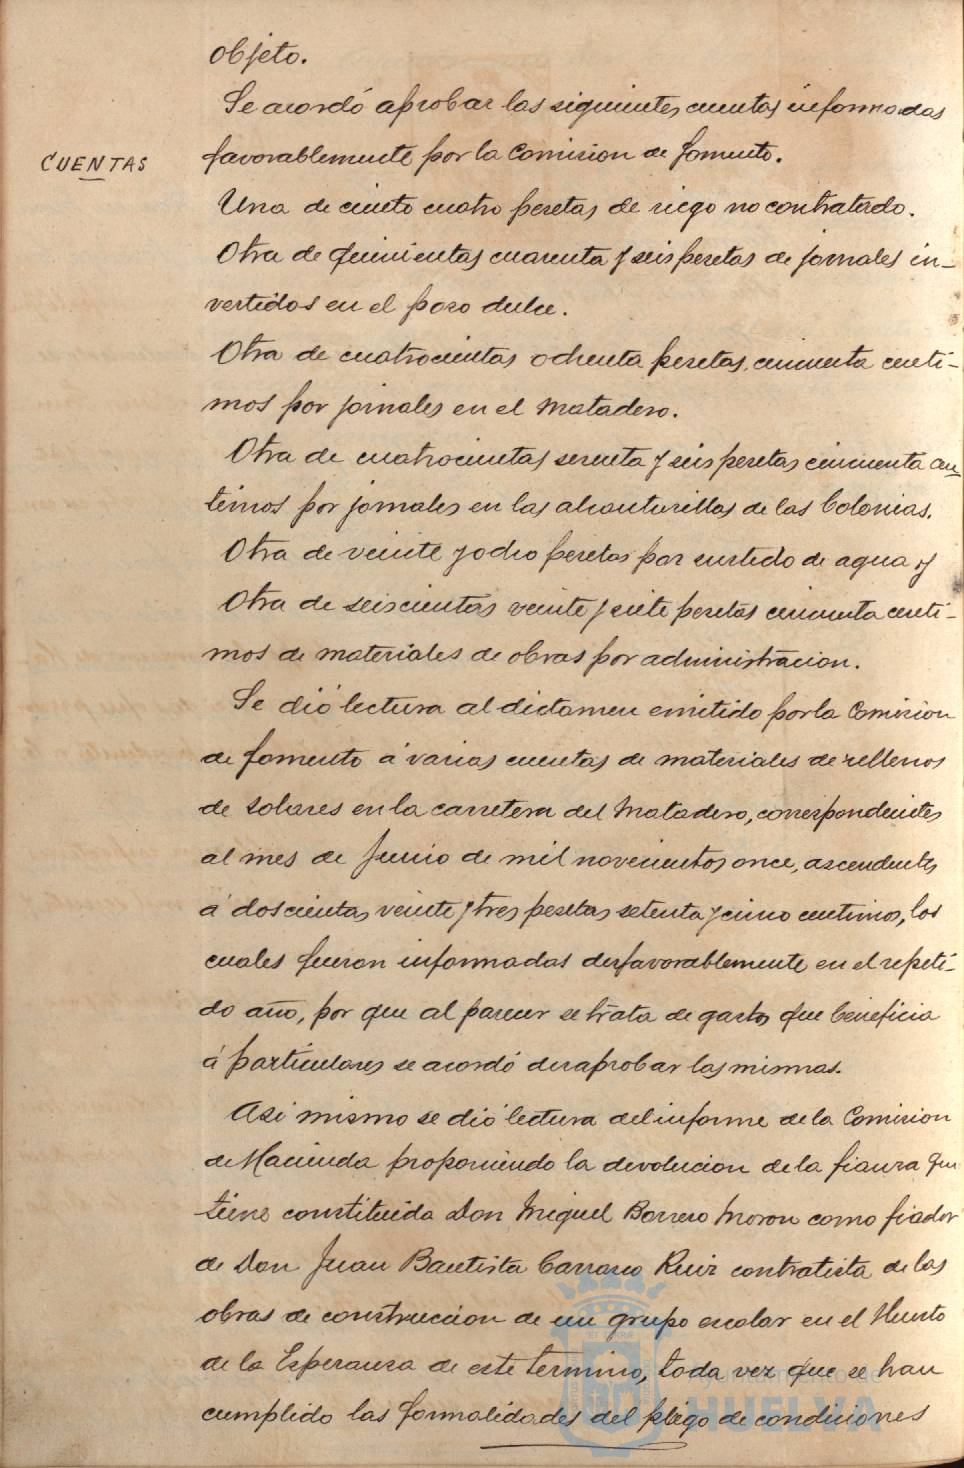 objeto.
Se acordó aprobar las siguientes cuentas informadas
CUENTAS
favorablemente por la Comision de fomento.
Una de ciento cuatro pesetas de riego no contratado.
Otra de quinientas cuarenta y seis pesetas de jornales in-
vertidos en el pozo dulce.
Otra de cuatrocientas ochenta pesetas, cincuenta centi-
mos por jornales en el Matadero.
Otra de cuatrocientas sesenta y seis pesetas cincuenta cen-
timos por jornales en las alcanturillas de las Colonias.
Otra de veinte y ocho pesetas por surtido de agua y
Otra de seiscientas veinte y siete pesetas cincuenta centi-
mos de materiales de obras por administracion.
Se dió lectura al dictamen emitido por la Comision
de fomento á varias cuentas de materiales de rellenos
de solares en la carretera del Matadero, correspondientes
al mes de Junio de mil novecientos once, ascendentes
á doscientas veinte y tres pesetas setenta y cinco centimos, los
cuales fueron informadas desfavorablemente en el repeti-
do año, por que al parecer se trata de gastos que beneficia
á particulares se acordó desaprobar las mismas.
Asi mismo se dió lectura del informe de la Comision
de Hacienda proponiendo la devolucion de la fianza que
tiene constituida Don Miguel Borrero Moron como fiador
de Don Juan Bautista Carrasco Ruiz contratista de las
obras de construccion de un grupo escolar en el Huerto
de la Esperanza de este termino, toda vez que se han
cumplido las formalidades del plego de condiciones
Ayuntamiento de
HUELVA